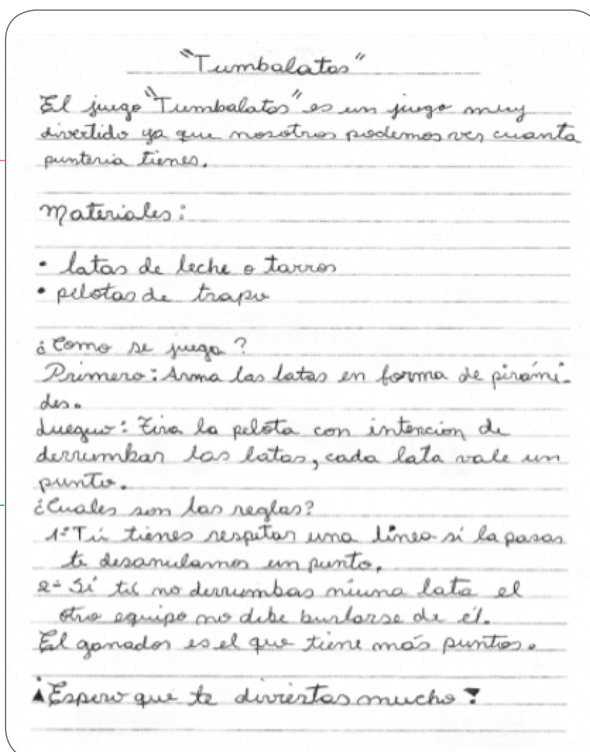 "Tumbalatas"
El juego "Tumbalatas" es un juego muy
divertido ya que nosotros podemos ver cuanta
punteria tienes.
Materiales:
• latas de leche o tarros
• pelotas de trapo
¿Como se juega?
Primero: Arma las latas en forma de pirámi-
des.
Lueguo: Tira la pelota con intencion de
derrumbar las latas, cada lata vale un
punto.
¿Cuales son las reglas?
1º Tú tienes respetar una línea sí la pasas
te desanulamos un punto.
2º Sí tú no derrumbas niuna lata el
otro equipo no debe burlarse de él.
El ganador es el que tiene más puntos.
¡Espero que te diviertas mucho!